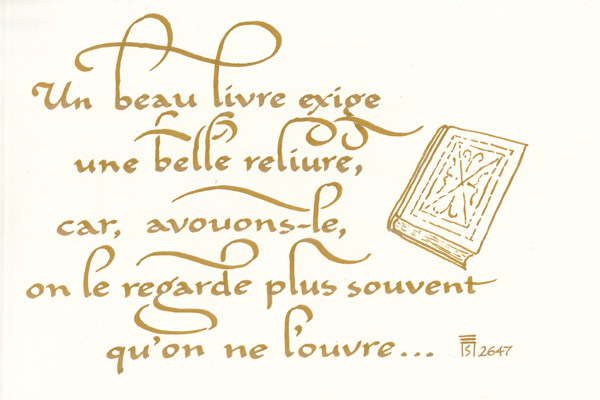 Un beau livre exige
une belle reliure,
car, avouons-le,
on le regarde plus souvent
qu'on ne l'ouvre...
S 2647